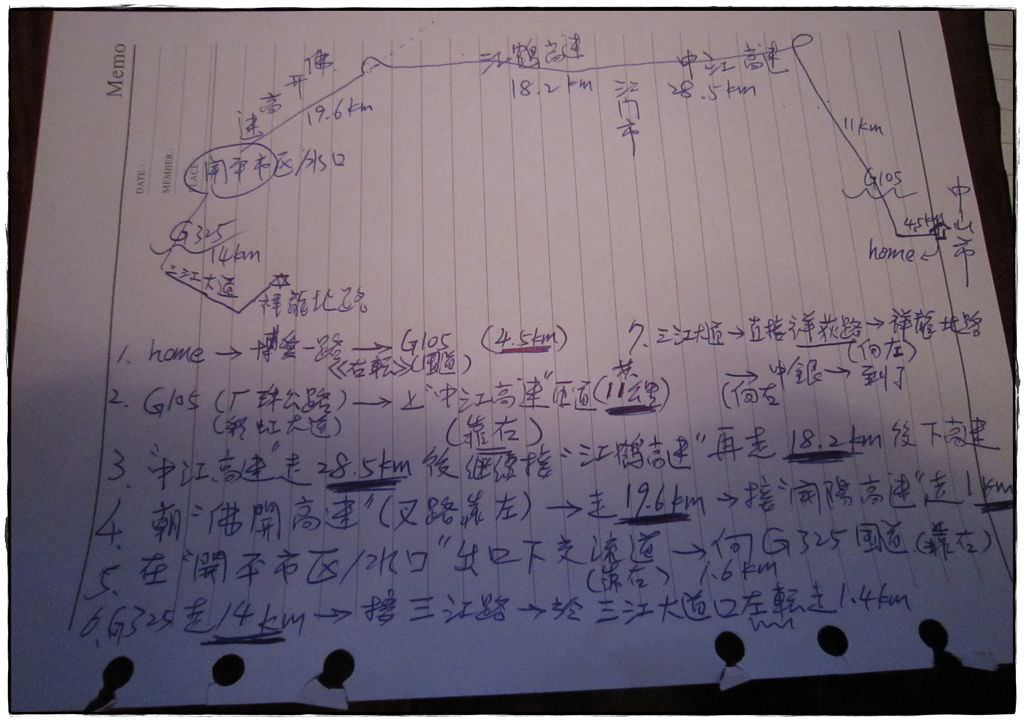 Memo
DATE:
MEMBER:
PLACE:
佛開高速
19.6km
江鶴高速
18.2km
江門市
中江高速
28.5km
11km
G105
4.5km
home
中山市
開平市区/水口
G325
14km
三江大道
祥龍北路
1. home → 博愛一路 → G105 (4.5km)
《右転》(囯道)
2. G105 (广珠公路) → 上"中江高速"匝道 (共11公里)
(彩虹大道) (靠右)
3. "中江高速"走28.5km 後 继续接"江鶴高速"再走 18.2km 後下高速
4. 朝"佛開高速"(叉路靠左) → 走 19.6km → 接"開陽高速"走1km
5. 在"開平市区/水口"出口下交流道 → 向G325囯道(靠右)
(靠右) 1.6km
6. G325走14km → 接三江路 → 於三江大道口左転走1.4km
7. 三江大道 → 直接祥荻路 → 祥龍北路
(向左)
→ 中銀 → 到了
(向右